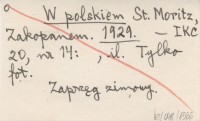 W polskiem St. Moritz,
Zakopanem. 1929. — IKC
20, na 14: , il. Tylko
fot.
Zaprzęg zimowy.